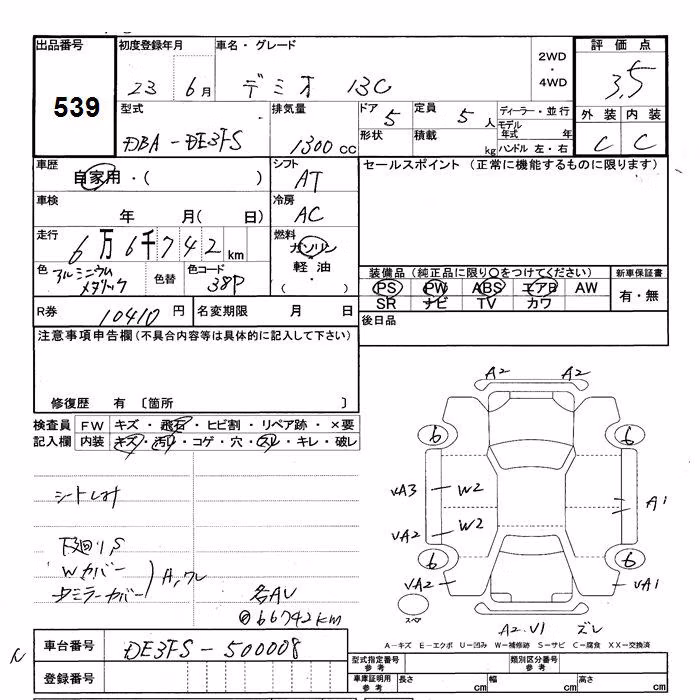 出品番号
539
初度登録年月
23 6月
車名・グレード
デミオ 13C
2WD
4WD
評価点
3.5
外装 内装
C C
型式
DBA-DE3FS
排気量
1300 CC
ドア 5
定員 5人
ディーラー・並行
モデル年式 年
形状
積載 kg
ハンドル 左・右
車歴
自家用・( )
シフト
AT
セールスポイント (正常に機能するものに限ります)
車検
年 月( 日)
冷房
AC
走行
6万6千742km
燃料
ガソリン
軽油
( ・ )
色
アルミニウム
メタリック
色替
色コード
38P
装備品 (純正品に限り○をつけてください)
PS PW ABS エアB AW
SR ナビ TV カワ
新車保証書
有・無
R券 10410円
名変期限 月 日
後日品
注意事項申告欄 (不具合内容等は具体的に記入して下さい)
修復歴 有 〔箇所 〕
検査員記入欄
FW キズ・飛石・ヒビ割・リペア跡・×要
内装 キズ・汚れ・コゲ・穴・スレ・キレ・破レ
下廻りS
Wカバー
A,ワレ
各AU
66742km
A2 A2
6 6
UA3 W2
A1
UA2 W2
6 6
UA2 UA1
スペア
A2.U1 ズレ
A-キズ E-エクボ U-凹み W-補修跡 S-サビ C-腐食 XX-交換済
車台番号
DE3FS-500008
登録番号
型式指定番号
参考
類別区分番号
参考
車庫証明用
参考
長さ cm
幅 cm
高さ cm